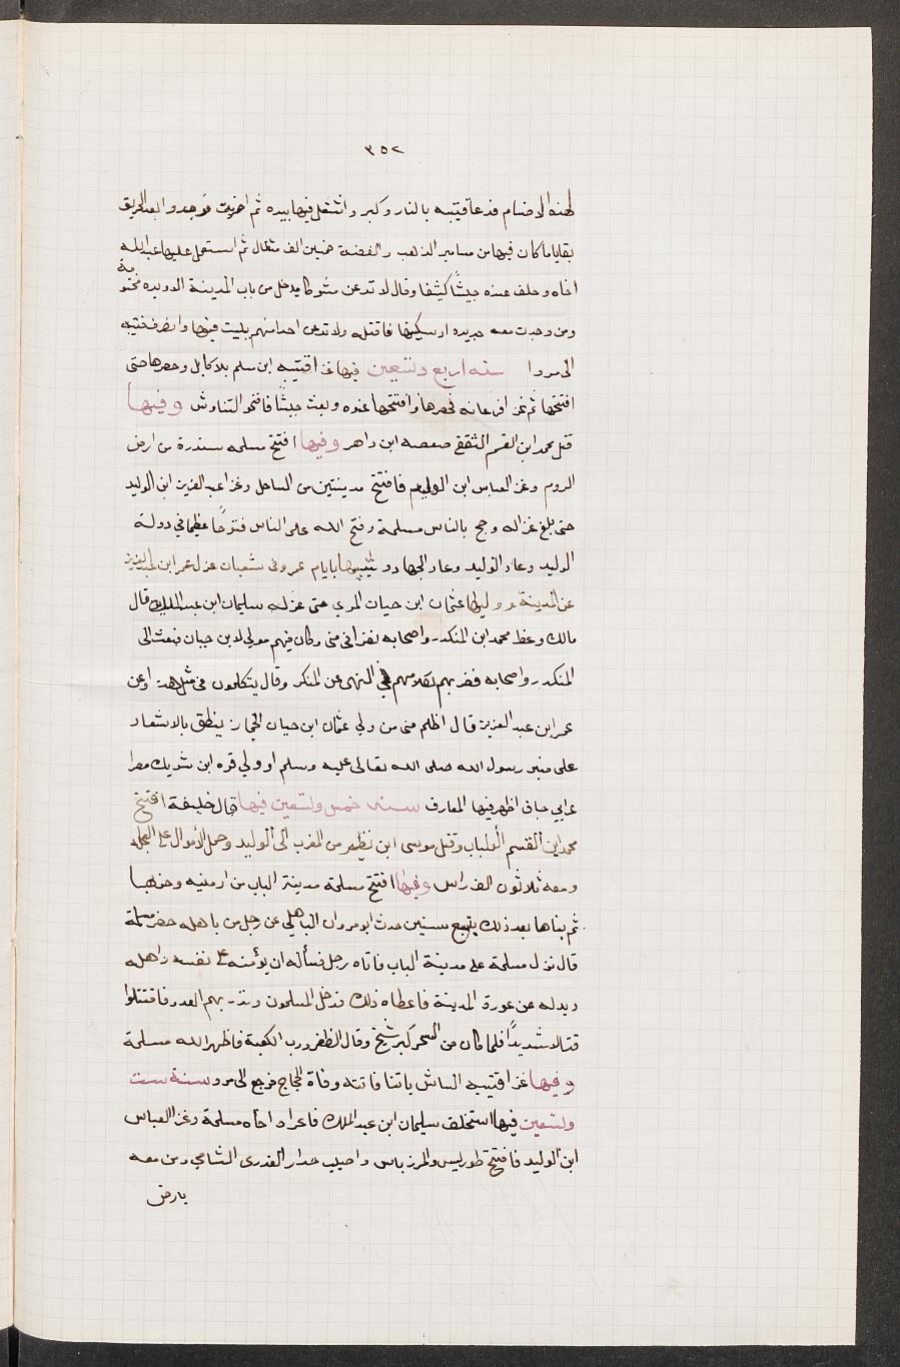 ٣٥٢
لهذه الاضام فدعا قتيبه بالنار وكبر واشتعل فيها بيده ثم اضرمت فوجدوا بعد الحريق
بقايا ما كان فيها من مسامير الذهب والفضة خمسين الف مثقال ثم استعمل عليها عبد الله
اخاه وخلف عنده جيشا كثيفا وقال لا تدعن مشركا يدخل من باب المدينة الا ويده مختومة
ومن وجدت معه حديده او سكينا فاقتله ولا تدعن احدا منهم يبيت فيها وانصرف قتيبه
الى مروا سنه اربع وتسعين فيها غزا قتيبه ابن سلم بلاد كابل وحصرها حتى
افتتحها ثم غزا فرغانه فحصرها وافتتحها عنوه وبعث جيشا فافتتحوا الشاش وفيها
قتل محمد ابن القسم الثقفي صعصه ابن داهر وفيها افتتح مسلمه سندرة من ارض
الروم وغزا العباس ابن الوليد فافتتح مدينتين من الساحل وغزا عبد العزيز ابن الوليد
حتى بلغ غزاله وحج بالناس مسلمة وفتح الله على الناس فتوحا عظيما في دولة
الوليد وعاد الجهاد شبيها بايام عمر وفي شعبان عزل عمر ابن عبد العزيز
عن المدينة ووليها عثمان ابن حيان المري حتى عزله سليمان ابن عبد الملك قال
مالك وعظ محمد ابن المنكدر واصحابه نفرا في منى وكان فيهم مولى لابن حيان فبعث الى
المنكدر واصحابه فضربهم لكلامهم في النهي عن المنكر وقال يتكلمون في مثل هذا وعن
عمر ابن عبد العزيز قال اظلم منى من ولي عثمان ابن حيان الحجاز ينطق بالاشعار
على منبر رسول الله صلى الله تعالى عليه وسلم او ولي قره ابن شريك مصرا
عرابي جاف اظهر فيها المعازف سنه خمس وتسعين فيها قال خليفة افتتح
محمد ابن القسم المولتان وقفل موسى ابن نصير من المغرب الى الوليد وحمل الاموال على العجل
ومعه ثلاثون الف راس وفيها افتتح مسلمة مدينة الباب من ارمنيه وخربها
ثم بناها بعد ذلك بتسع سنين حدث ابو مروان الباهلي عن رجل من باهله حضر مسلمة
قال نزل مسلمة على مدينة الباب فاتاه رجل فسأله ان يؤمنه على نفسه واهله
ويدله عن عورة المدينة فاعطاه ذلك فدخل المسلمون ونذر بهم العدو فاقتتلوا
قتالا شديدًا فلما كان من السحر كبر شيخ وقال الظفر ورب الكعبة فاظهر الله مسلمة
وفيها غزا قتيبه الشاش ثانيا فاتته وفاة الحجاج فرجع الى مرو سنة ست
وتسعين فيها استخلف سليمان ابن عبد الملك فاغزا اخاه مسلمة وغزا العباس
ابن الوليد فافتتح طوليس والمرزباس واصيب جدار العذرى الشامي ومن معه
بارض